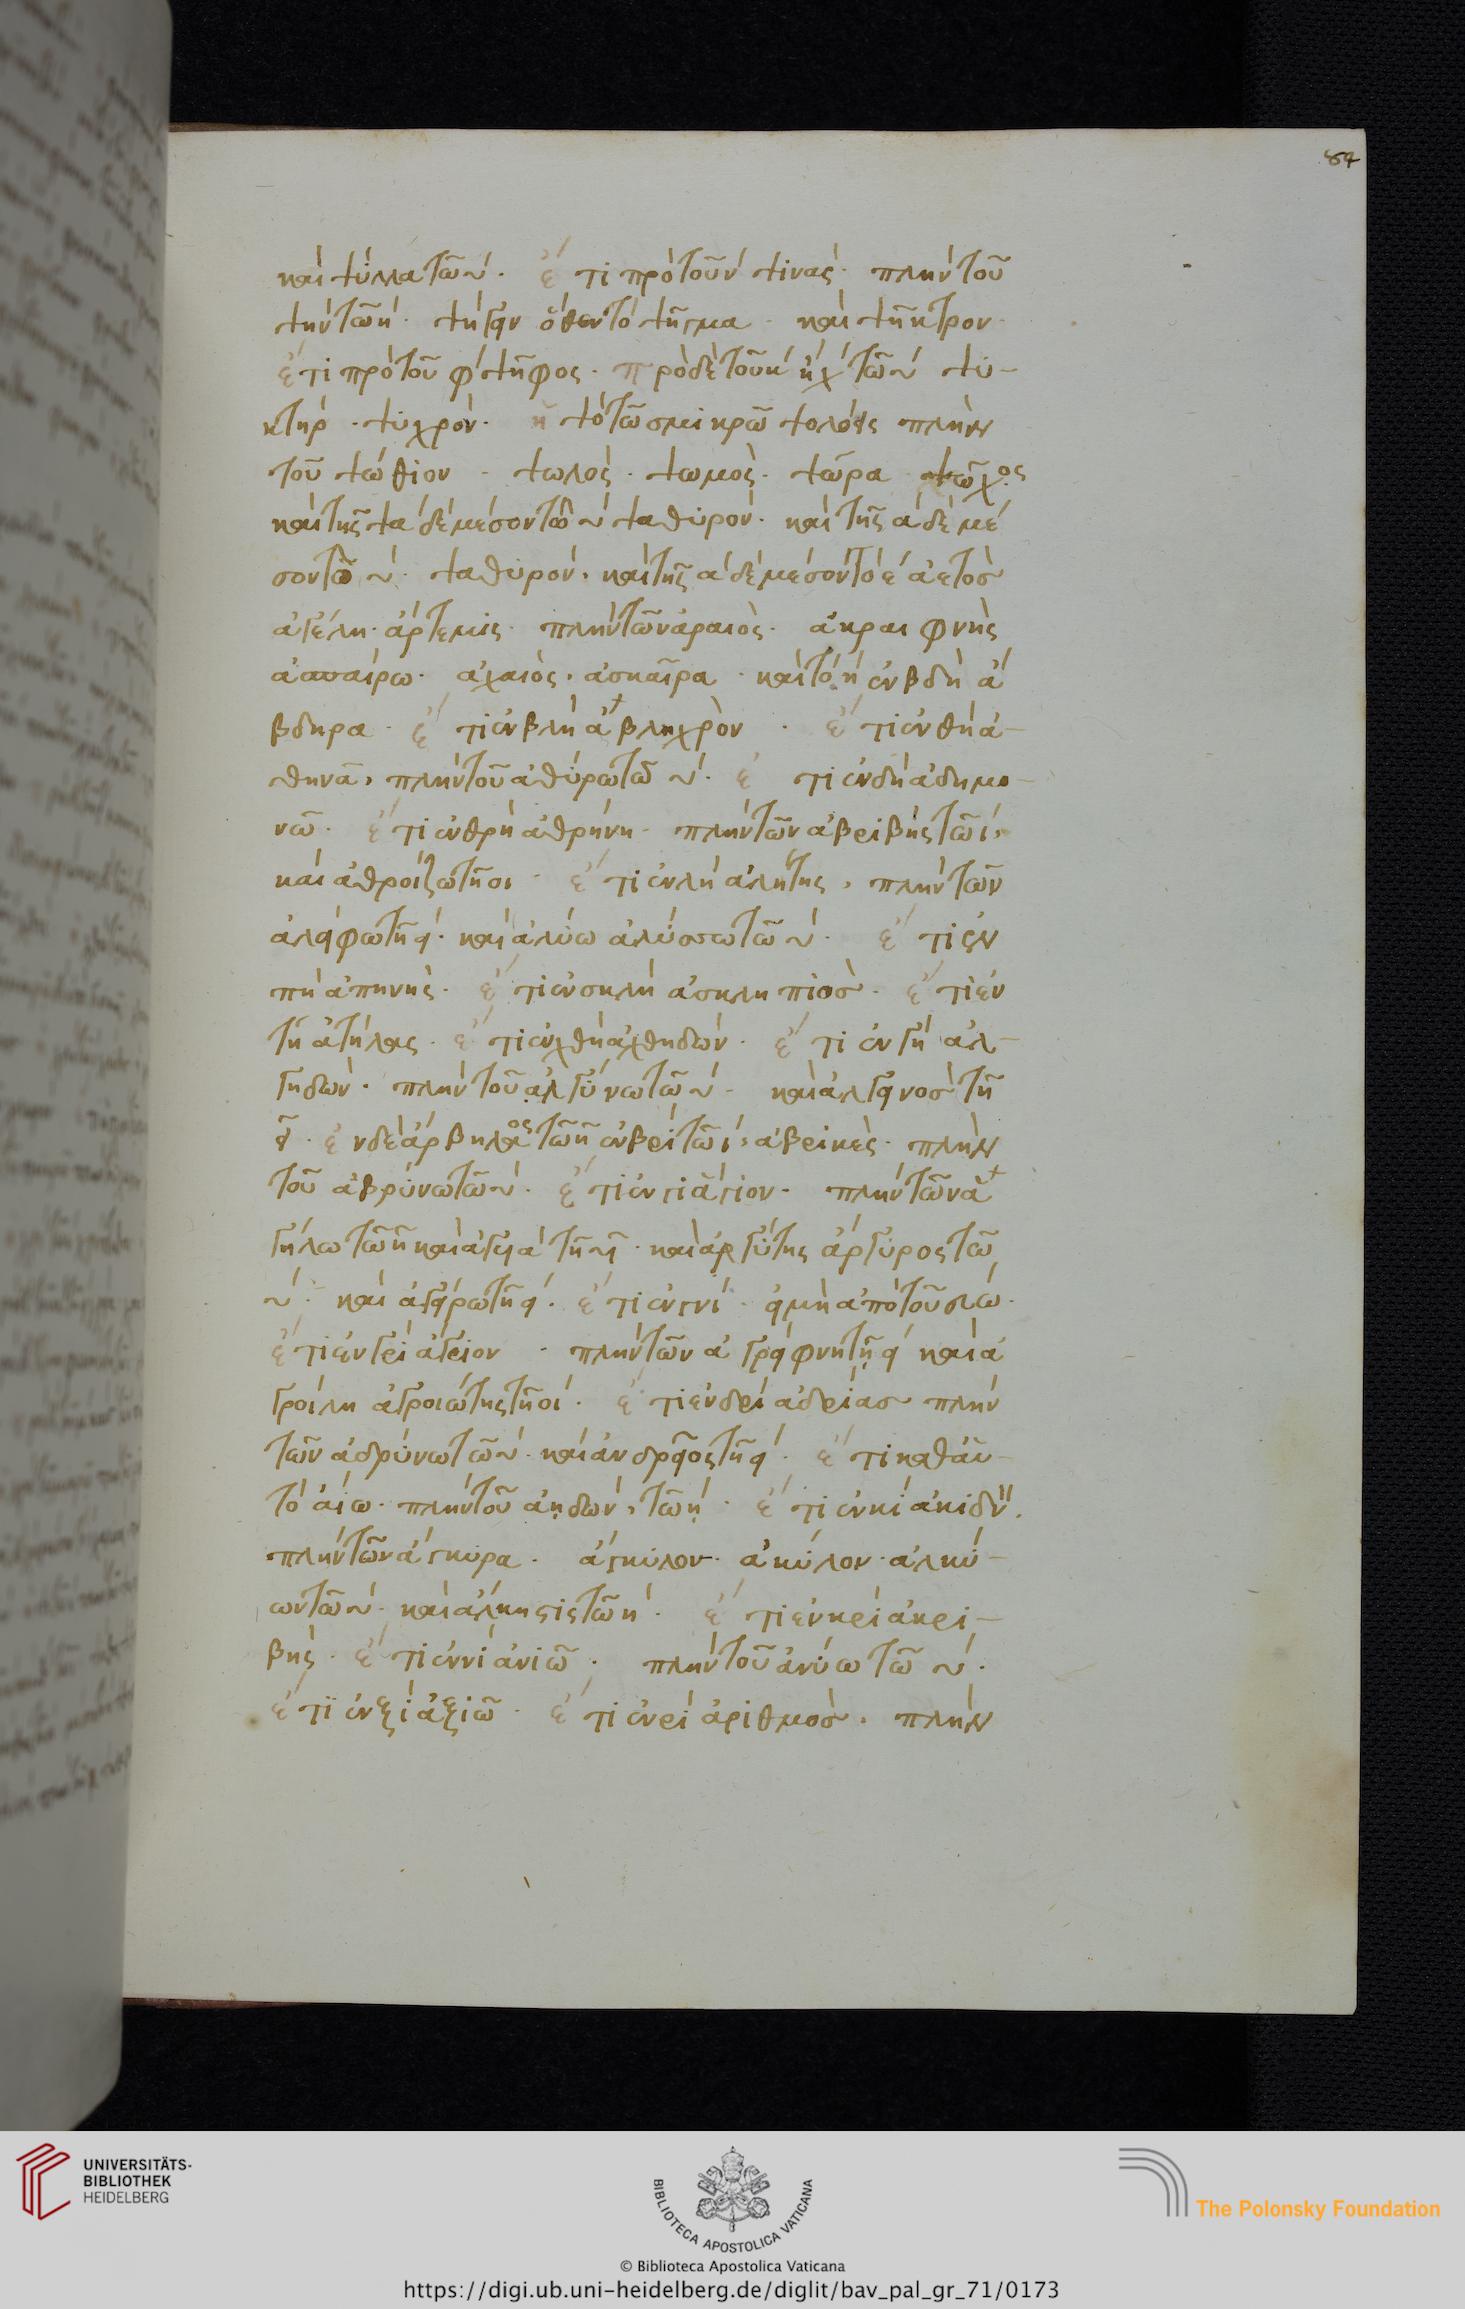 84
καὶ ψύλλα τῶ υ´. ἔτι πρὸ τοῦ ν´ ψίνας. πλὴν τοῦ
ψὴν τῶ η´. ψῆγν ὅθεν τὸ ψῆγμα. καὶ ψῆκτρον.
ἔτι πρὸ τοῦ φ´ ψῆφος. πρὸ δὲ τοῦ κ´ ἢ χ´ τῶ υ´ ψυ-
κτήρ. ψυχρόν. ἢ ψὸ τῶ σμικρῶ ψολόεις πλὴν
τοῦ ψώθιον. ψωλός. ψωμός. ψῶρα ψῶχος
καὶ τῆς ψα δὲ μέσον τῶ υ´ ψαθυρόν. καὶ τῆς α´ δὲ μέ
σον τῶ υ´. ψαθυρόν. καὶ τῆς α´ δὲ μέσον τὸ ε´ ἀετὸσ
ἀγέλη. ἄρτεμις. πλὴν τῶν ἀραιός. ἀκραιφνὴς
ἀπαίρω. ἀχαιός. ἀσκαῖρα. καὶ τὸ η´ ἐν βδη ἄ
βδηρα. ἔτι ἐν βλη ἀβληχρὸν. ἔτι ἐν θη ἀ-
θηνᾶ, πλὴν τοῦ ἀθύρω τῶ υ´. ἔτι ἐν δη ἀδημο-
νῶ. ἔτι ἐν θρη ἀθρήνη. πλὴν τῶν ἀβριβὴς τῶ ι´,
καὶ ἀθροίζω τῆ οι. ἔτι ἐν λη ἀλήτης, πλὴν τῶν
ἀλείφω τῆ ει´. καὶ ἀλύω ἀλύσσω τῶ υ´. ἔτι ἐν
πη ἀπηνής. ἔτι ἐν σκλη ἀσκληπιὸσ. ἔτι ἐν
τη ἀτηλὰς. ἔτι ἐν χθη ἀχθηδών. ἔτι ἐν γη ἀλ-
γηδών. πλὴν τοῦ ἀλγύνω τῶ υ´. καὶ ἀλγεινοσ τῆ
ει. ἐν δὲ ἄρβηλος τῶ η ἐν βρι τῶ ι´, ἀβρικὲς. πλὴν
τοῦ ἁβρύνω τῶ υ´. ἔτι ἐν γι ἅγιον. πλὴν τῶν ἀ
γήλω τῶ η καὶ ἄγυια τῆ υι. καὶ ἀργύτης ἄργυρος τῶ
υ´. καὶ ἀγείρω τῆ ει´. ἔτι ἐν γνι. εἰ μὴ ἀπὸ τοῦ σιω.
ἔτι ἐν γρι ἄγριον. πλὴν τῶν ἀγρειφνη τῆ ει´ καὶ ἀ
γροίκη ἀγροιώτης τῆ οι´. ἔτι ἐν δρι ἀδρίασ πλὴν
τῶν ἁδρύνω τῶ υ´. καὶ ἀνδρεῖος τῆ ει´. ἔτι καθ᾽ αὑ-
τὸ ἀίω. πλὴν τοῦ ἀηδών, τῶ η´. ἔτι ἐν κι ἀκιδν´.
πλὴν τῶν ἄγκυρα. ἀγκύλον. ἀκύλον. ἀλκύ-
ων τῶ υ´. καὶ ἄλκηστις τῶ η´. ἔτι ἐν κρι ἀκρι-
βής. ἔτι ἐν νι ἀνιῶ. πλὴν τοῦ ἀνύω τῶ υ´.
ἔτι ἐν ξι ἀξιῶ. ἔτι ἐν ρι ἀριθμὸσ. πλὴν
UNIVERSITÄTS-
BIBLIOTHEK
HEIDELBERG
BIBLIOTECA APOSTOLICA VATICANA
The Polonsky Foundation
© Biblioteca Apostolica Vaticana
https://digi.ub.uni-heidelberg.de/diglit/bav_pal_gr_71/0173